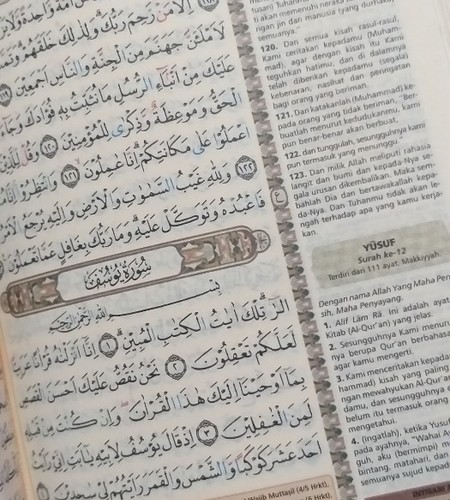 إِلَّا مَن رَّحِمَ رَبُّكَ ۚ وَلِذَٰلِكَ خَلَقَهُمْ ۗ وَتَمَّتْ
لَأَمْلَأَنَّ جَهَنَّمَ مِنَ الْجِنَّةِ وَالنَّاسِ أَجْمَعِينَ ١١٩
عَلَيْكَ مِنْ أَنبَاءِ الرُّسُلِ مَا نُثَبِّتُ بِهِ فُؤَادَكَ ۚ وَجَاءَكَ
الْحَقُّ وَمَوْعِظَةٌ وَذِكْرَىٰ لِلْمُؤْمِنِينَ ١٢٠ وَقُل لِّلَّذِينَ
اعْمَلُوا عَلَىٰ مَكَانَتِكُمْ إِنَّا عَامِلُونَ ١٢١ وَانتَظِرُوا إِنَّا
١٢٢ وَلِلَّهِ غَيْبُ السَّمَاوَاتِ وَالْأَرْضِ وَإِلَيْهِ يُرْجَعُ الْأَمْرُ
فَاعْبُدْهُ وَتَوَكَّلْ عَلَيْهِ ۚ وَمَا رَبُّكَ بِغَافِلٍ عَمَّا تَعْمَلُونَ
سُورَةُ يُوسُفَ
بِسْمِ اللَّهِ الرَّحْمَٰنِ الرَّحِيمِ
الر ۚ تِلْكَ آيَاتُ الْكِتَابِ الْمُبِينِ ١ إِنَّا أَنزَلْنَاهُ قُرْآنًا عَرَبِيًّا
لَّعَلَّكُمْ تَعْقِلُونَ ٢ نَحْنُ نَقُصُّ عَلَيْكَ أَحْسَنَ الْقَصَصِ
بِمَا أَوْحَيْنَا إِلَيْكَ هَٰذَا الْقُرْآنَ وَإِن كُنتَ مِن قَبْلِهِ
لَمِنَ الْغَافِلِينَ ٣ إِذْ قَالَ يُوسُفُ لِأَبِيهِ يَا أَبَتِ إِنِّي رَأَيْتُ
أَحَدَ عَشَرَ كَوْكَبًا وَالشَّمْسَ وَالْقَمَرَ رَأَيْتُهُمْ لِي سَاجِدِينَ
Wajib Muttaṣil (4/5 Hrkt),
ngan jin dan manusia (yang durhaka)
semuanya."
120. Dan semua kisah rasul-rasul,
Kami ceritakan kepadamu (Muham-
mad), agar dengan kisah itu Kami
teguhkan hatimu; dan di dalamnya
telah diberikan kepadamu (segala)
kebenaran, nasihat dan peringatan
bagi orang yang beriman.
121. Dan katakanlah (Muhammad) ke-
pada orang yang tidak beriman, "Ber-
buatlah menurut kedudukanmu, kami
pun benar-benar akan berbuat,
122. dan tunggulah, sesungguhnya kami
pun termasuk yang menunggu."
123. Dan milik Allah meliputi rahasia
langit dan bumi dan kepada-Nya se-
gala urusan dikembalikan. Maka sem-
bahlah Dia dan bertawakallah kepa-
da-Nya. Dan Tuhanmu tidak akan le-
ngah terhadap apa yang kamu kerja-
kan.
YŪSUF
Surah ke-12
Terdiri dari 111 ayat. Makkiyyah.
Dengan nama Allah Yang Maha Penga-
sih, Maha Penyayang.
1. Alif Lām Rā. Ini adalah ayat-
Kitab (Al-Qur'an) yang jelas.
2. Sesungguhnya Kami menurun-
nya berupa Qur'an berbahasa
agar kamu mengerti.
3. Kami menceritakan kepada
hammad) kisah yang paling
ngan mewahyukan Al-Qur'an
damu, dan sesungguhnya
belum itu termasuk orang
mengetahui.
4. (Ingatlah), ketika Yusuf
pada ayahnya, "Wahai Ay-
guh, aku (bermimpi) me
bintang, matahari, dan
semuanya sujud kepad